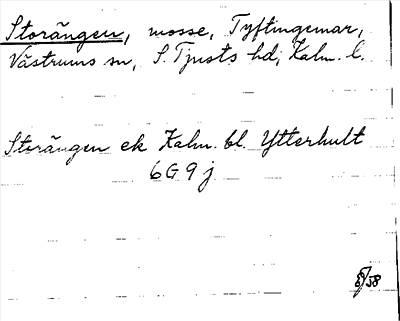 Storängen, mosse, Tyftingemar,
Västrums sn, S. Tjusts hd, Kalm. l.
Storängen ek Kalm. bl. Ytterhult
6G9j
/58